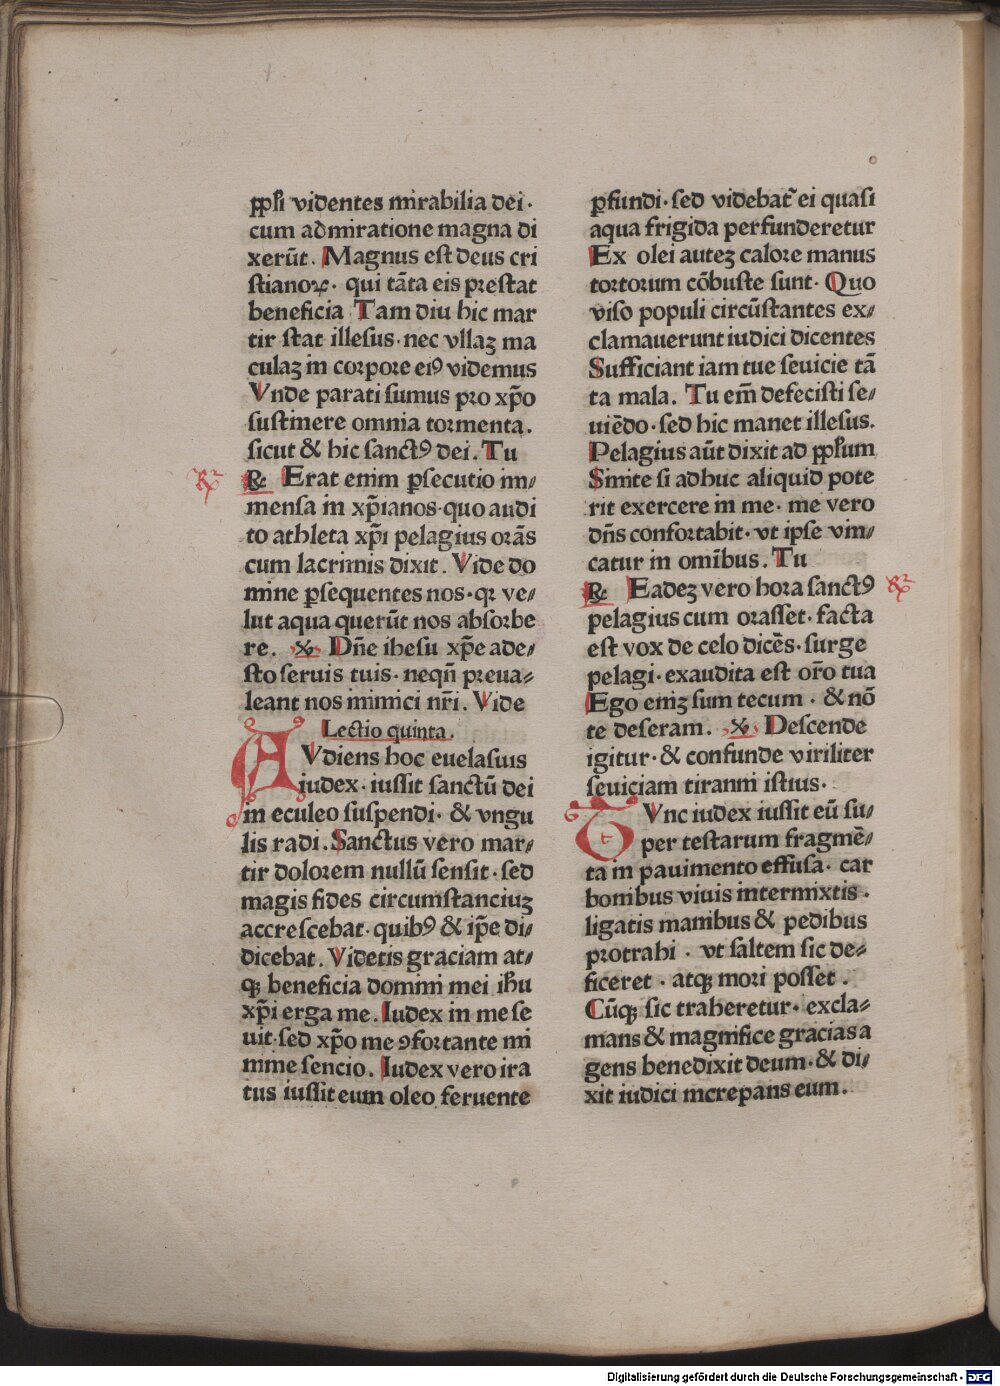 pp̄li videntes mirabilia dei ·
cum admiratione magna di
xerūt. Magnus est deus cri
stianoꝝ · qui tāta eis prestat
beneficia Tam diu hic mar
tir stat illesus · nec vllaꝫ ma
culaꝫ in corpore eiꝰ videmus
Vnde parati sumus pro xp̄o
sustinere omnia tormenta.
sicut & hic sanctꝰ dei. Tu
℞ Erat enim ꝑsecutio im⸗
mensa in xp̄ianos · quo audi
to athleta xp̄i pelagius orās
cum lacrimis dixit. Vide do
mine ꝑsequentes nos · qꝛ ve⸗
lut aqua querūt nos absorbe
re. ℣ Dn̄e ihesu xp̄e ade⸗
sto seruis tuis · neqn̄ preua⸗
leant nos inimici nr̄i. Vide
Lectio quinta.
AVdiens hoc euelasius
iudex · iussit sanctū dei
in eculeo suspendi · & vngu
lis radi. Sanctus vero mar⸗
tir dolorem nullū sensit · sed
magis fides circumstanciuꝫ
accrescebat · quibꝰ & ip̄e di⸗
dicebat. Videtis graciam at⸗
qꝫ beneficia domini mei ihū
xp̄i erga me. Iudex in me se
uit · sed xp̄o me ꝯfortante mi
nime sencio. Iudex vero ira
tus iussit eum oleo feruente
ꝑfundi · sed videbat᷑ ei quasi
aqua frigida perfunderetur
Ex olei auteꝫ calore manus
tortorum cōbuste sunt · Quo
viso populi circūstantes ex⸗
clamauerunt iudici dicentes
Sufficiant iam tue seuicie tā
ta mala. Tu em̄ defecisti se⸗
uiēdo · sed hic manet illesus.
Pelagius aūt dixit ad pp̄lum
Sinite si adhuc aliquid pote
rit exercere in me · me vero
dn̄s confortabit · vt ipse vin⸗
catur in omībus. Tu
℞ Eadeꝫ vero hora sanctꝰ
pelagius cum orasset · facta
est vox de celo dicēs · surge
pelagi · exaudita est or̄o tua
Ego eniꝫ sum tecum · & nō
te deseram. ℣ Descende
igitur · & confunde viriliter
seuiciam tiranni istius ·
TVnc iudex iussit eū su⸗
per testarum fragmē⸗
ta in pauimento effusa · car
bonibus viuis intermixtis ·
ligatis manibus & pedibus
protrahi · vt saltem sic de⸗
ficeret · atqꝫ mori posset.
Cūqꝫ sic traheretur · excla⸗
mans & magnifice gracias a
gens benedixit deum · & di⸗
xit iudici increpans eum.
Digitalisierung gefördert durch die Deutsche Forschungsgemeinschaft - DFG